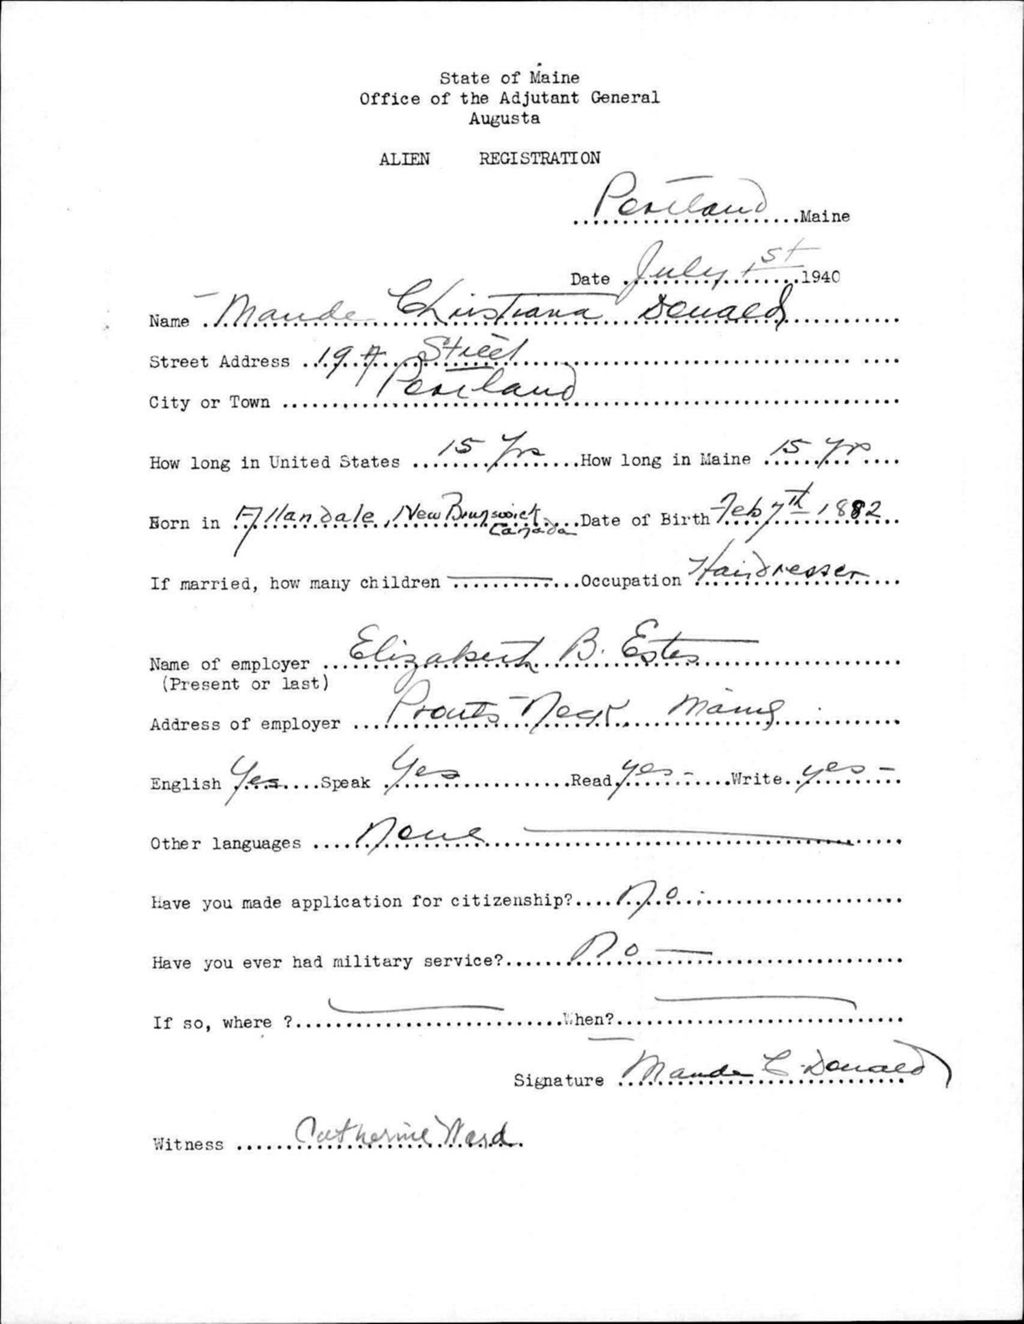 State of Maine
Office of the Adjutant General
Augusta
ALIEN REGISTRATION
Portland Maine
Date July 1st 1940
Name Maude Christiana Donald
Street Address 19 A Street
City or Town Portland
How long in United States 15 Yrs How long in Maine 15 Yrs
Born in Allandale, New Brunswick Canada Date of Birth Feb 7th 1882
If married, how many children Occupation Hairdresser
Name of employer Elizabeth B. Estes
(Present or last)
Address of employer Prouts Neck Maine
English Yes Speak Yes Read yes - Write yes -
Other languages None
Have you made application for citizenship? No.
Have you ever had military service? No
If so, where ? When?
Signature Maude C. Donald
Witness Catherine Ward